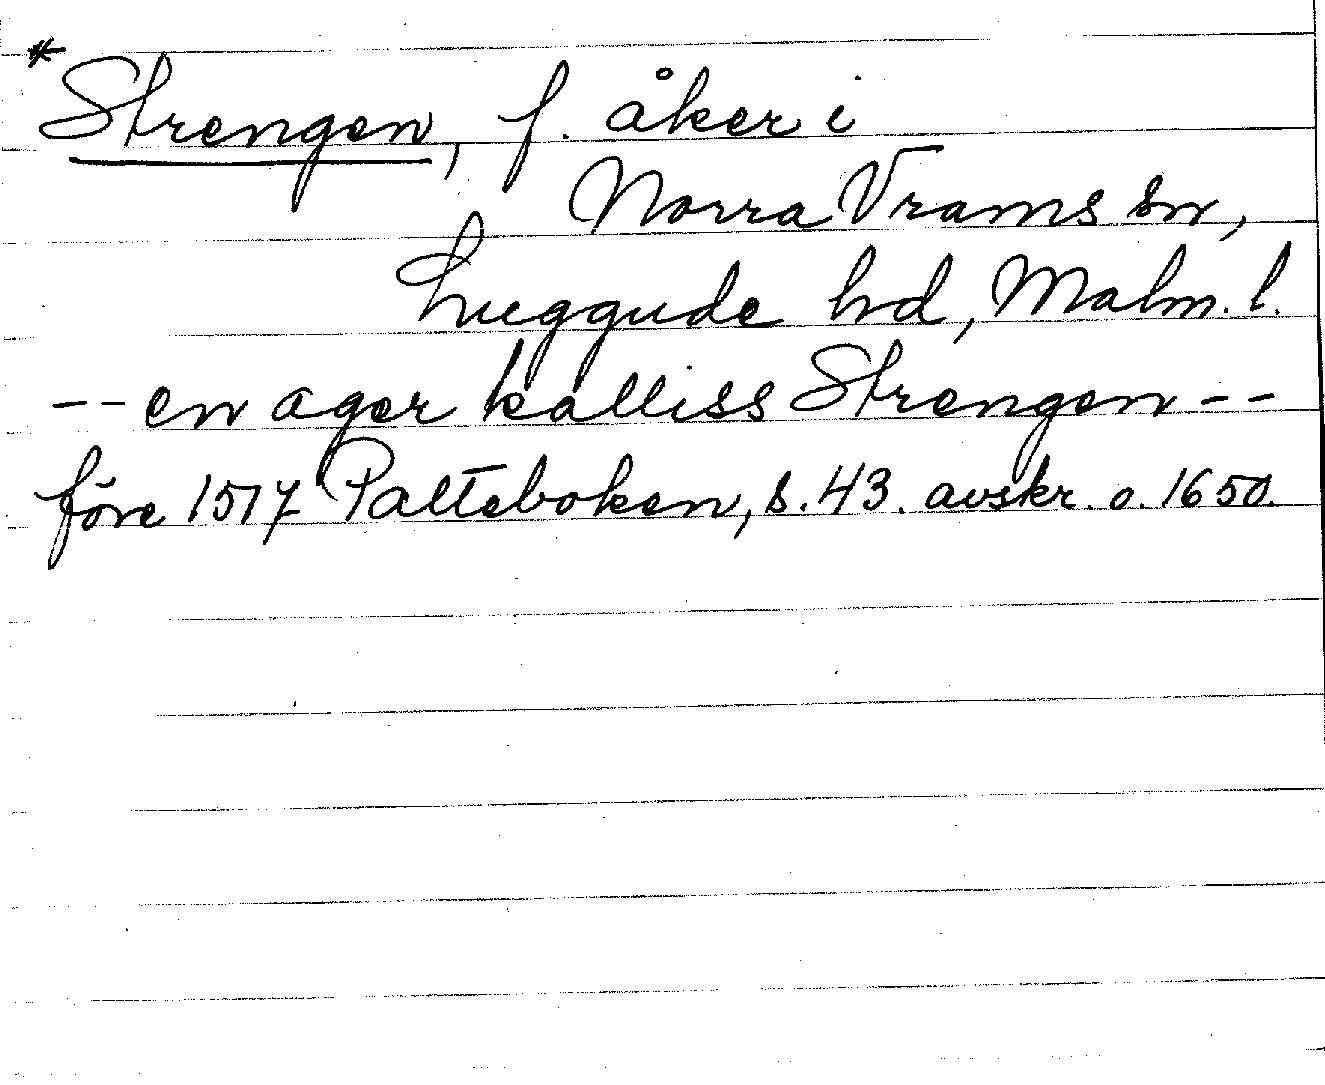 *
Strengen, f. åker i
Norra Vrams sn,
Luggude hd, Malm. l.
-- en ager kalliss Strengen --
före 1517 Palteboken, s. 43. avskr. o. 1650.